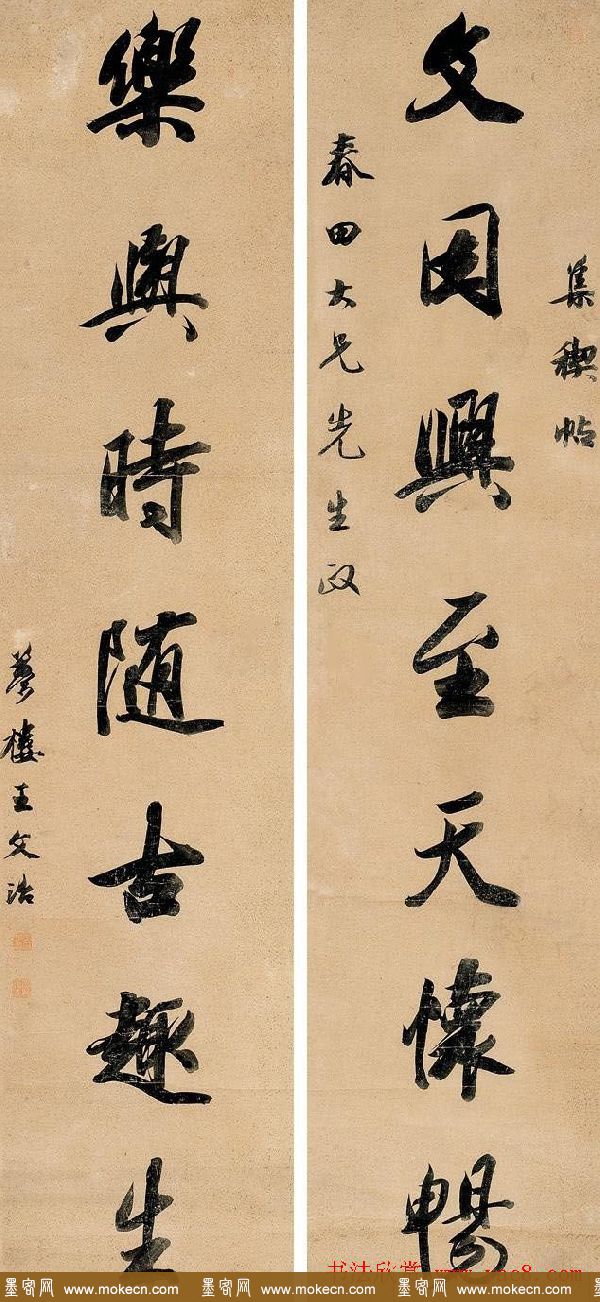 集禊帖
文因興至天懷暢
春田大兄先生政
樂與時随古趣生
夢樓王文治
书法欣赏
墨客网 www.mokecn.com 墨客网 www.mokecn.com 墨客网 www.mokecn.com